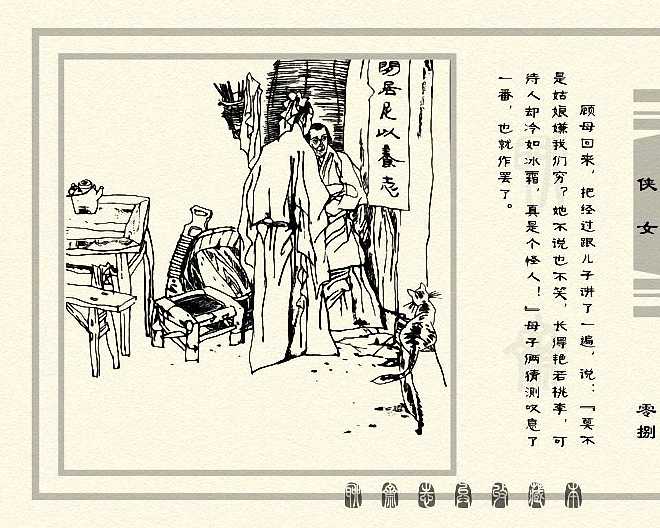 顾母回来，把经过跟儿子讲了一遍，说：『莫不
是姑娘嫌我们穷？她不说也不笑，长得艳若桃李，可
待人却冷如冰霜，真是个怪人！』母子俩猜测叹息了
一番，也就作罢了。
侠女
零捌
閒居足以養志
聊齋志異收藏本